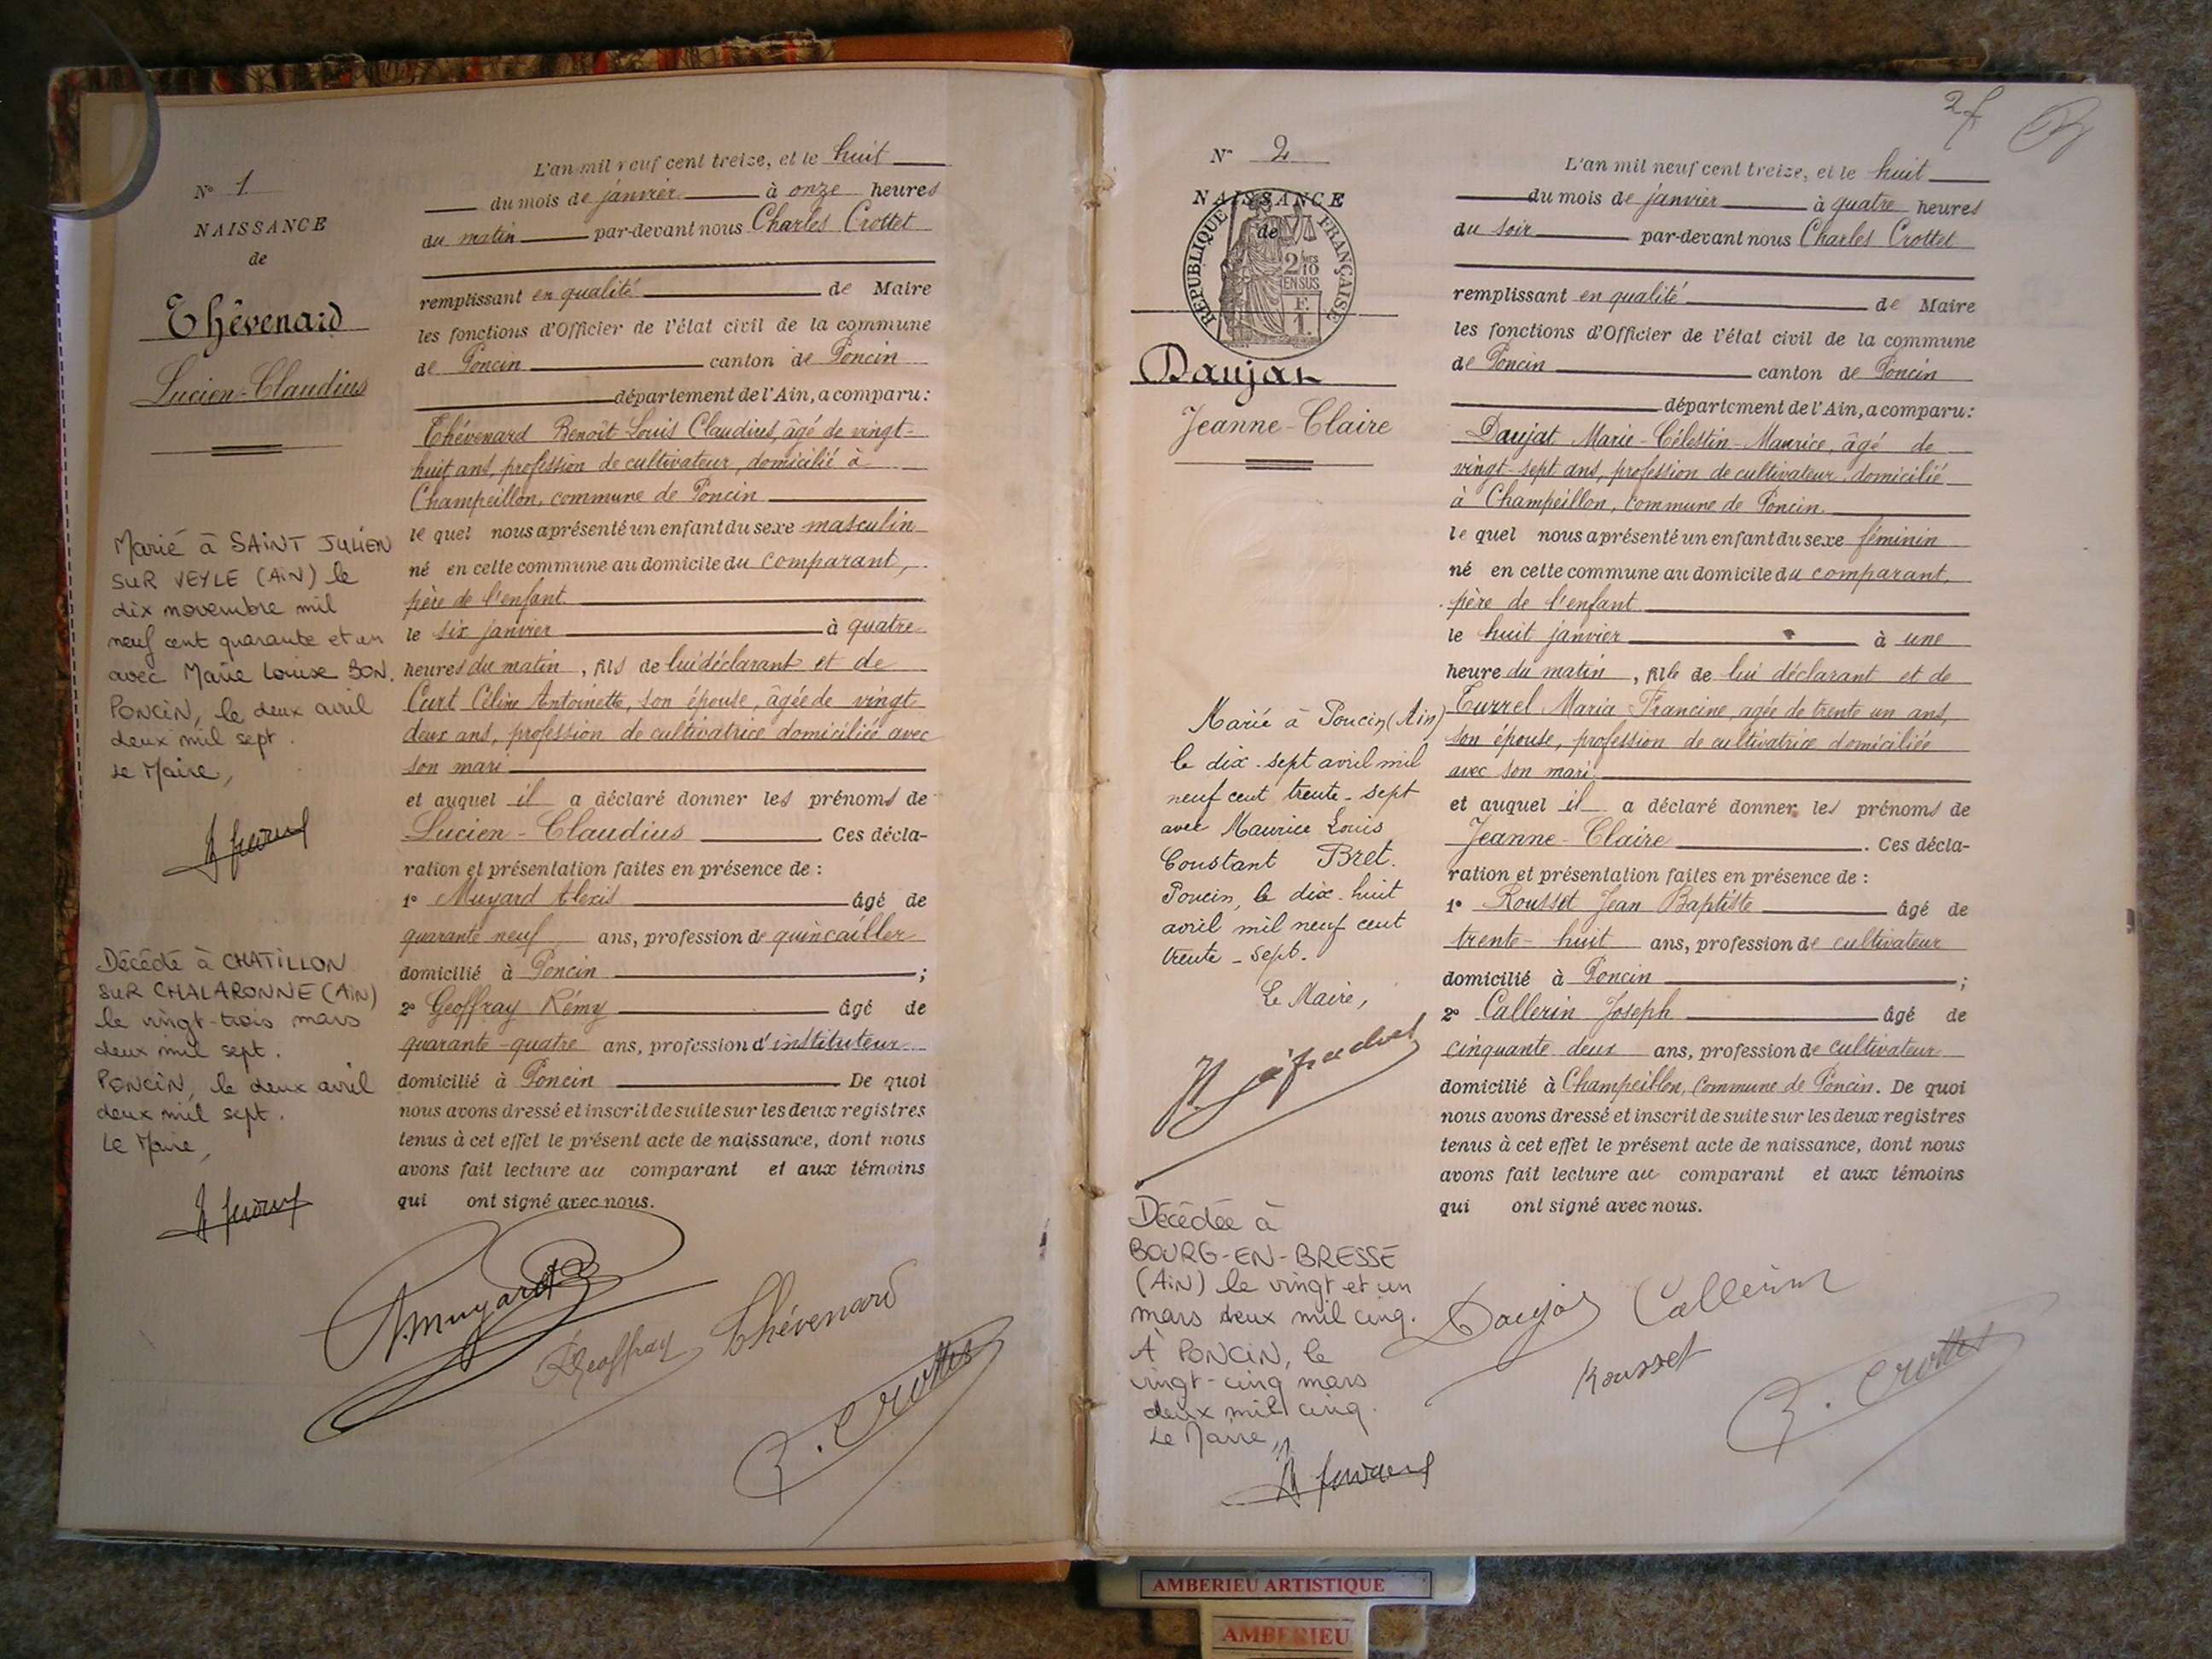 N° 1
NAISSANCE
de
Thévenard
Lucien-Claudius
Marié à SAINT JULIEN
SUR VEYLE (AIN) le
dix novembre mil
neuf cent quarante et un
avec Marie Louise BON.
PONCIN, le deux avril
deux mil sept.
Le Maire,
Décédé à CHATILLON
SUR CHALARONNE (AIN)
le vingt-trois mars
deux mil sept.
PONCIN, le deux avril
deux mil sept.
Le Maire,
L'an mil neuf cent treize, et le huit
du mois de janvier à onze heures
du matin par-devant nous Charles Crottet
remplissant en qualité de Maire
les fonctions d'Officier de l'état civil de la commune
de Poncin canton de Poncin
département de l'Ain, a comparu:
Thévenard Benoît Louis Claudius, âgé de vingt-
huit ans, profession de cultivateur, domicilié à
Champeillon, commune de Poncin
le quel nous a présenté un enfant du sexe masculin
né en cette commune au domicile du comparant,
père de l'enfant
le six janvier à quatre
heures du matin, fils de lui déclarant et de
Curt Céline Antoinette, son épouse, âgée de vingt-
deux ans, profession de cultivatrice domiciliée avec
son mari
et auquel il a déclaré donner les prénoms de
Lucien-Claudius Ces décla-
ration et présentation faites en présence de :
1° Muyard Alexis âgé de
quarante neuf ans, profession de quincailler
domicilié à Poncin ;
2° Geoffray Rémy âgé de
quarante-quatre ans, profession d'instituteur
domicilié à Poncin De quoi
nous avons dressé et inscrit de suite sur les deux registres
tenus à cet effet le présent acte de naissance, dont nous
avons fait lecture au comparant et aux témoins
qui ont signé avec nous.
A. Muyard
Geoffray Thévenard
C. Crottet
N° 2
NAISSANCE
de
RÉPUBLIQUE FRANÇAISE
2/10 MES
EN SUS
F.
1.
Daujat
Jeanne-Claire
Marié à Poncin (Ain)
le dix-sept avril mil
neuf cent trente-sept
avec Maurice Louis
Constant Bret.
Poncin, le dix-huit
avril mil neuf cent
trente-sept.
Le Maire,
Décédée à
BOURG-EN-BRESSE
(AIN) le vingt et un
mars deux mil cinq.
À PONCIN, le
vingt-cinq mars
deux mil cinq.
Le Maire,
2f
L'an mil neuf cent treize, et le huit
du mois de janvier à quatre heures
du soir par-devant nous Charles Crottet
remplissant en qualité de Maire
les fonctions d'Officier de l'état civil de la commune
de Poncin canton de Poncin
département de l'Ain, a comparu:
Daujat Marie-Célestin-Maurice, âgé de
vingt-sept ans, profession de cultivateur domicilié
à Champeillon, commune de Poncin.
le quel nous a présenté un enfant du sexe féminin
né en cette commune au domicile du comparant,
père de l'enfant
le huit janvier à une
heure du matin, fille de lui déclarant et de
Turrel Maria Francine, agée de trente un ans,
son épouse, profession de cultivatrice domiciliée
avec son mari
et auquel il a déclaré donner les prénoms de
Jeanne-Claire. Ces décla-
ration et présentation faites en présence de :
1° Rousset Jean Baptiste âgé de
trente-huit ans, profession de cultivateur
domicilié à Poncin ;
2° Callerin Joseph âgé de
cinquante deux ans, profession de cultivateur
domicilié à Champeillon, commune de Poncin. De quoi
nous avons dressé et inscrit de suite sur les deux registres
tenus à cet effet le présent acte de naissance, dont nous
avons fait lecture au comparant et aux témoins
qui ont signé avec nous.
Daujat Callerin
Rousset
C. Crottet
AMBERIEU ARTISTIQUE
AMBERIEU